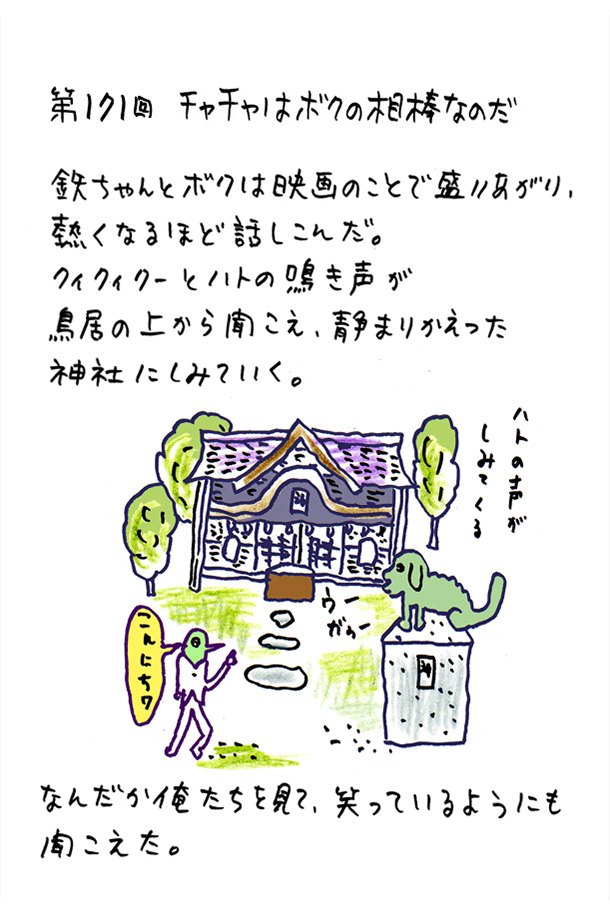 第171回 チャチャはボクの相棒なのだ
鉄ちゃんとボクは映画のことで盛りあがり、
熱くなるほど話しこんだ。
クィクィクーとハトの鳴き声が
鳥居の上から聞こえ、静まりかえった
神社にしみていく。
ハトの声が
しみてくる
ウー
ガゥー
こんにちワ
なんだか俺たちを見て、笑っているようにも
聞こえた。